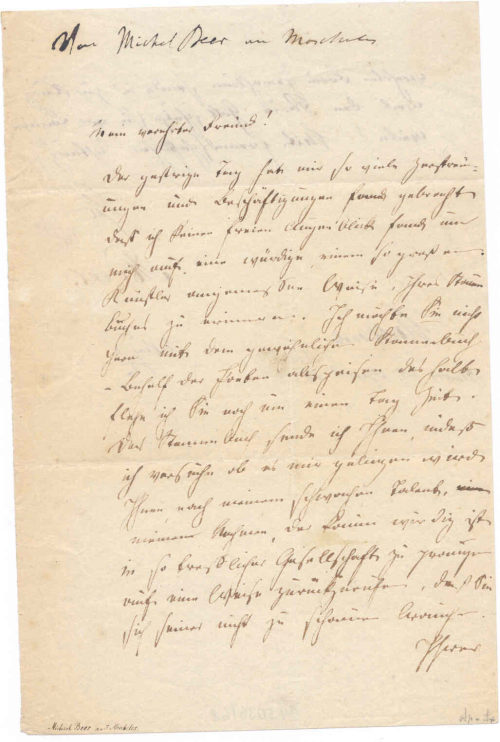 Von Michel Beer an Moscheles
Mein verehrter Freund!
Der gestrige Tag hat mir so viele Zerstreu-
ungen und Beschäftigungen gebracht
daß ich keinen freien Augenblick fand um
mich auf eine würdige, einem so großen
Künstler angemessene Weise, Ihres Stamm
buches zu erinnern. Ich möchte Sie nicht
gern mit dem gewöhnlichen Stammbuch
- Behelf der abspeisen deshalb
flehe ich Sie noch um einen Tag Zeit.
Das Stammbuch sende ich Ihnen, indeß
ich versuche ob es mir gelingen wird
Ihnen nach meinem schwachen Talent,
meinen Nahmen, der kaum würdig ist
in so trefflicher Gesellschaft zu prangen
auf eine Weise zurückzurufen, daß Sie
sich seiner nicht zu schämen brauchen.
Ihrer
Michael Beer an I. Moscheles